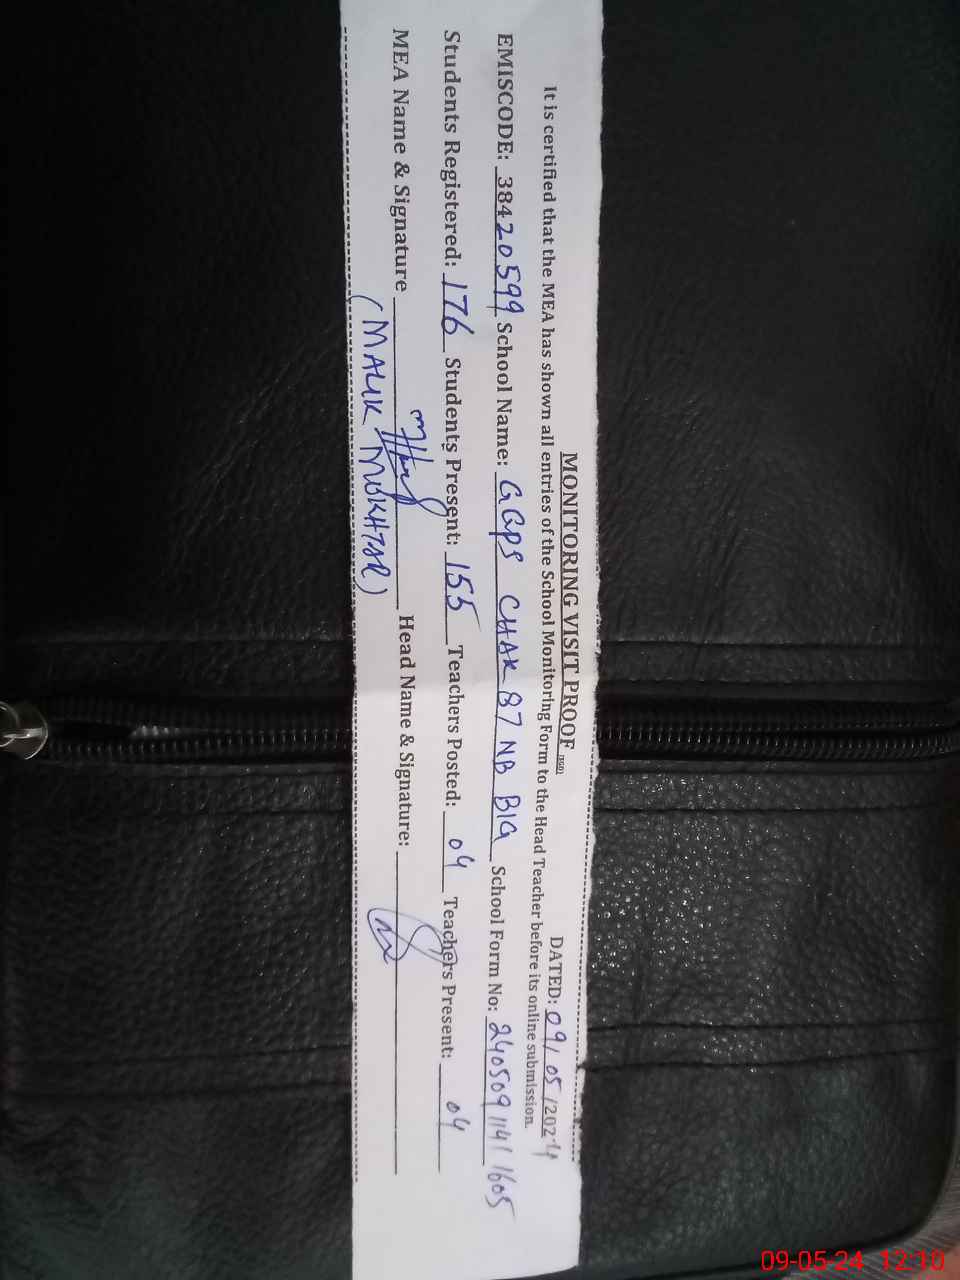 MONITORING VISIT PROOF DATED: 09/05/2024
It is certified that the MEA has shown all entries of the School Monitoring Form to the Head Teacher before its online submission.
EMISCODE: 38420599 School Name: GGPS CHAK 87 NB B19 School Form No: 2405091141 1605
Students Registered: 176 Students Present: 155 Teachers Posted: 04 Teachers Present: 04
MEA Name & Signature Head Name & Signature:
(MALIK MUKHTAR)
09-05-24 12:10